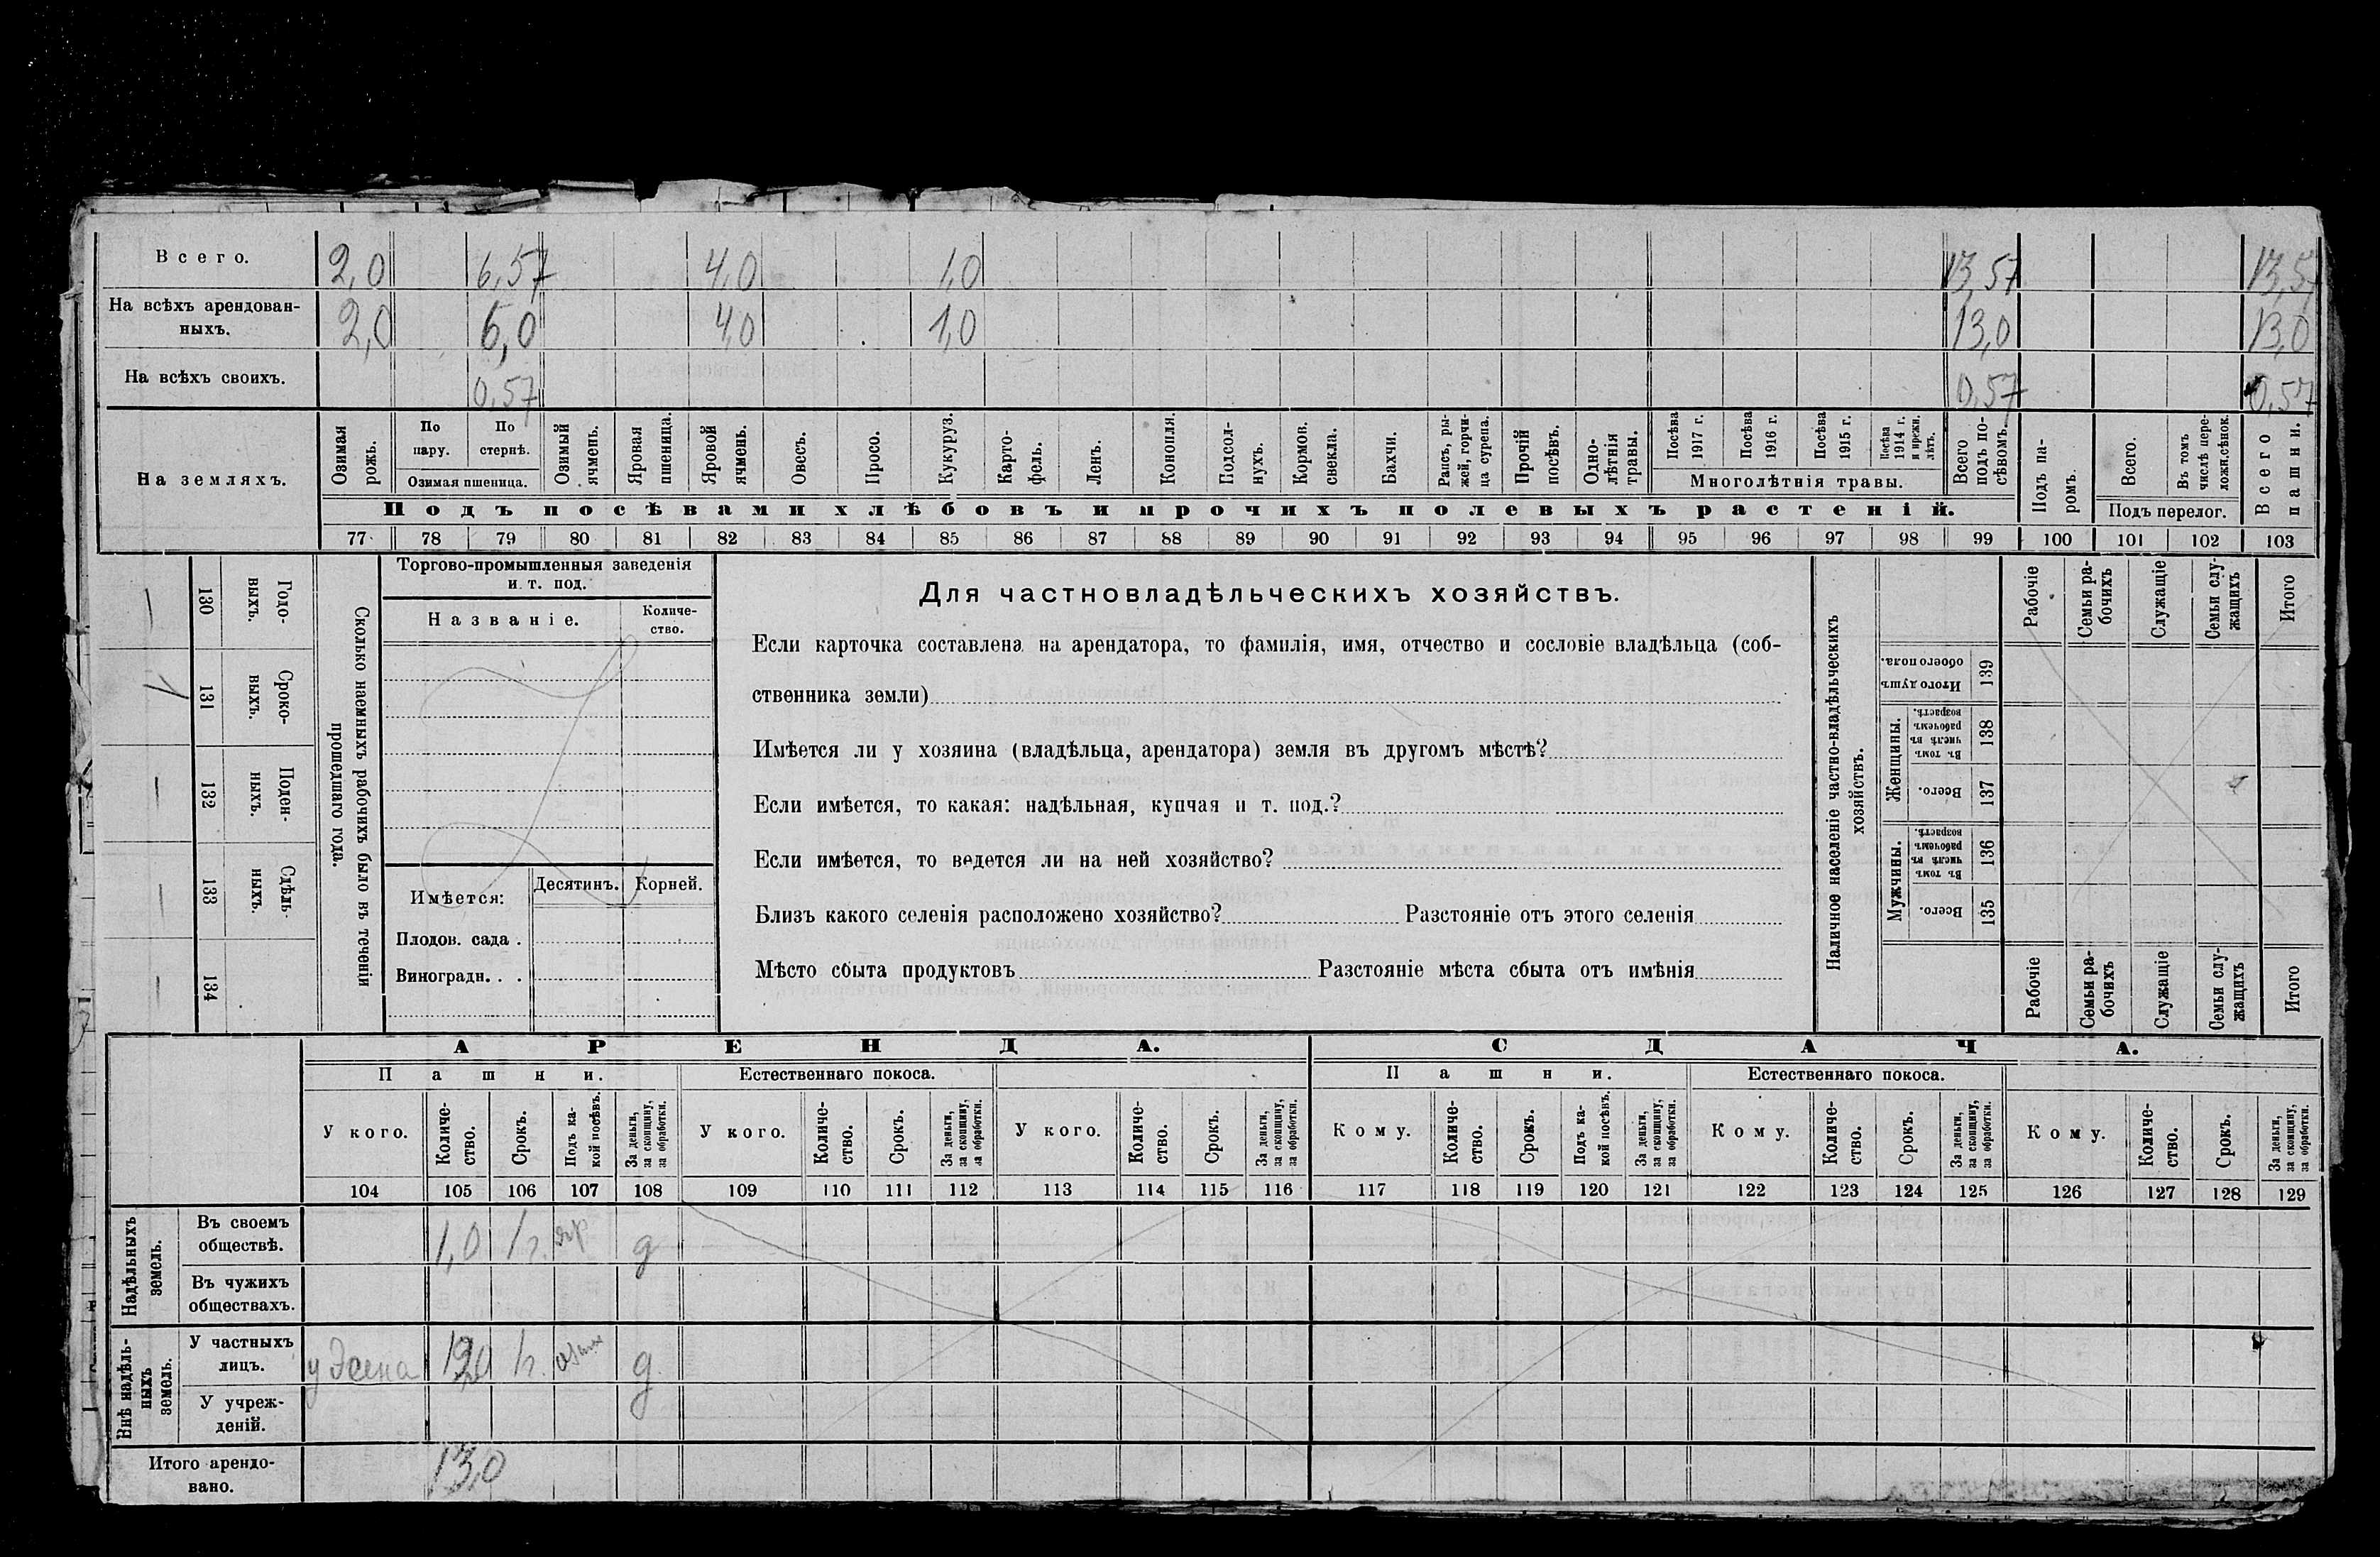 Всего. 2,0 6,57 4,0 1,0 13,57 13,57
На всѣхъ арендован-
ныхъ. 2,0 6,0 4,0 1,0 13,0 13,0
На всѣхъ своихъ. 0,57 0,57 0,57
На земляхъ.
Озимая рожь.
По пару.
По стернѣ.
Озимая пшеница.
Озимый ячмень.
Яровая пшеница.
Яровой ячмень.
Овесъ.
Просо.
Кукуруз.
Карто-
фель.
Ленъ.
Конопля.
Подсол-
нухъ.
Кормов. свекла.
Бахчи.
Рапсъ, ры-
жей, горчи-
ца сурепа.
Прочій посѣвъ.
Одно-
лѣтнія травы.
Посѣва 1917 г.
Посѣва 1916 г.
Посѣва 1915 г.
Посѣва 1914 г. и прежн. лѣтъ.
Многолѣтнія травы.
Всего подъ по-
сѣвомъ.
Подъ па-
ромъ.
Всего.
Въ томъ числѣ пере-
ложн.сѣнок.
Подъ перелог.
Всего пашни.
Подъ посѣвами хлѣбовъ и прочихъ полевыхъ растеній.
77 78 79 80 81 82 83 84 85 86 87 88 89 90 91 92 93 94 95 96 97 98 99 100 101 102 103
Сколько наемныхъ рабочихъ было въ теченіи
прошедшаго года.
Годо-
выхъ.
130
Сроко-
выхъ.
131
1
Поден-
ныхъ.
132
Сдѣль-
ныхъ.
133
134
Торгово-промышленныя заведенія
и т. под.
Названіе.
Количе-
ство.
Имѣется: Десятинъ. Корней.
Плодов. сада .
Виноградн. . .
Для частновладѣльческихъ хозяйствъ.
Если карточка составлена на арендатора, то фамилія, имя, отчество и сословіе владѣльца (соб-
ственника земли)
Имѣется ли у хозяина (владѣльца, арендатора) земля въ другомъ мѣстѣ?
Если имѣется, то какая: надѣльная, купчая и т. под.?
Если имѣется, то ведется ли на ней хозяйство?
Близъ какого селенія расположено хозяйство? Разстояніе отъ этого селенія
Мѣсто сбыта продуктовъ Разстояніе мѣста сбыта отъ имѣнія
Наличное населеніе частно-владѣльческихъ
хозяйствъ.
Рабочіе
Семьи ра-
бочихъ
Служащіе
Семьи слу-
жащихъ
Итого
Итого душъ обоего пола.
139
Женщины.
Въ томъ числѣ въ рабочемъ возрастѣ.
138
Всего.
137
Мужчины.
Въ томъ числѣ въ рабочемъ возрастѣ.
136
Всего.
135
Рабочіе
Семьи ра-
бочихъ
Служащіе
Семьи слу-
жащихъ
Итого
АРЕНДА. СДАЧА.
Пашни. Естественнаго покоса. Пашни. Естественнаго покоса.
У кого.
Количе-
ство.
Срокъ.
Подъ ка-
кой посѣвъ.
За деньги,
за скопщину,
за обработки.
У кого.
Количе-
ство.
Срокъ.
За деньги,
за скопщину,
за обработки.
У кого.
Количе-
ство.
Срокъ.
За деньги,
за скопщину,
за обработки.
Кому.
Количе-
ство.
Срокъ.
Подъ ка-
кой посѣвъ.
За деньги,
за скопщину,
за обработки.
Кому.
Количе-
ство.
Срокъ.
За деньги,
за скопщину,
за обработки.
Кому.
Количе-
ство.
Срокъ.
За деньги,
за скопщину,
за обработки.
104 105 106 107 108 109 110 111 112 113 114 115 116 117 118 119 120 121 122 123 124 125 126 127 128 129
Надѣльныхъ
земель.
Въ своемъ
обществѣ. 1,0 1 г. яр д
Въ чужихъ
обществахъ.
Внѣ надѣль-
ныхъ
земель.
У частныхъ
лицъ. 1г. д
У учреж-
деній.
Итого арендо-
вано. 13,0